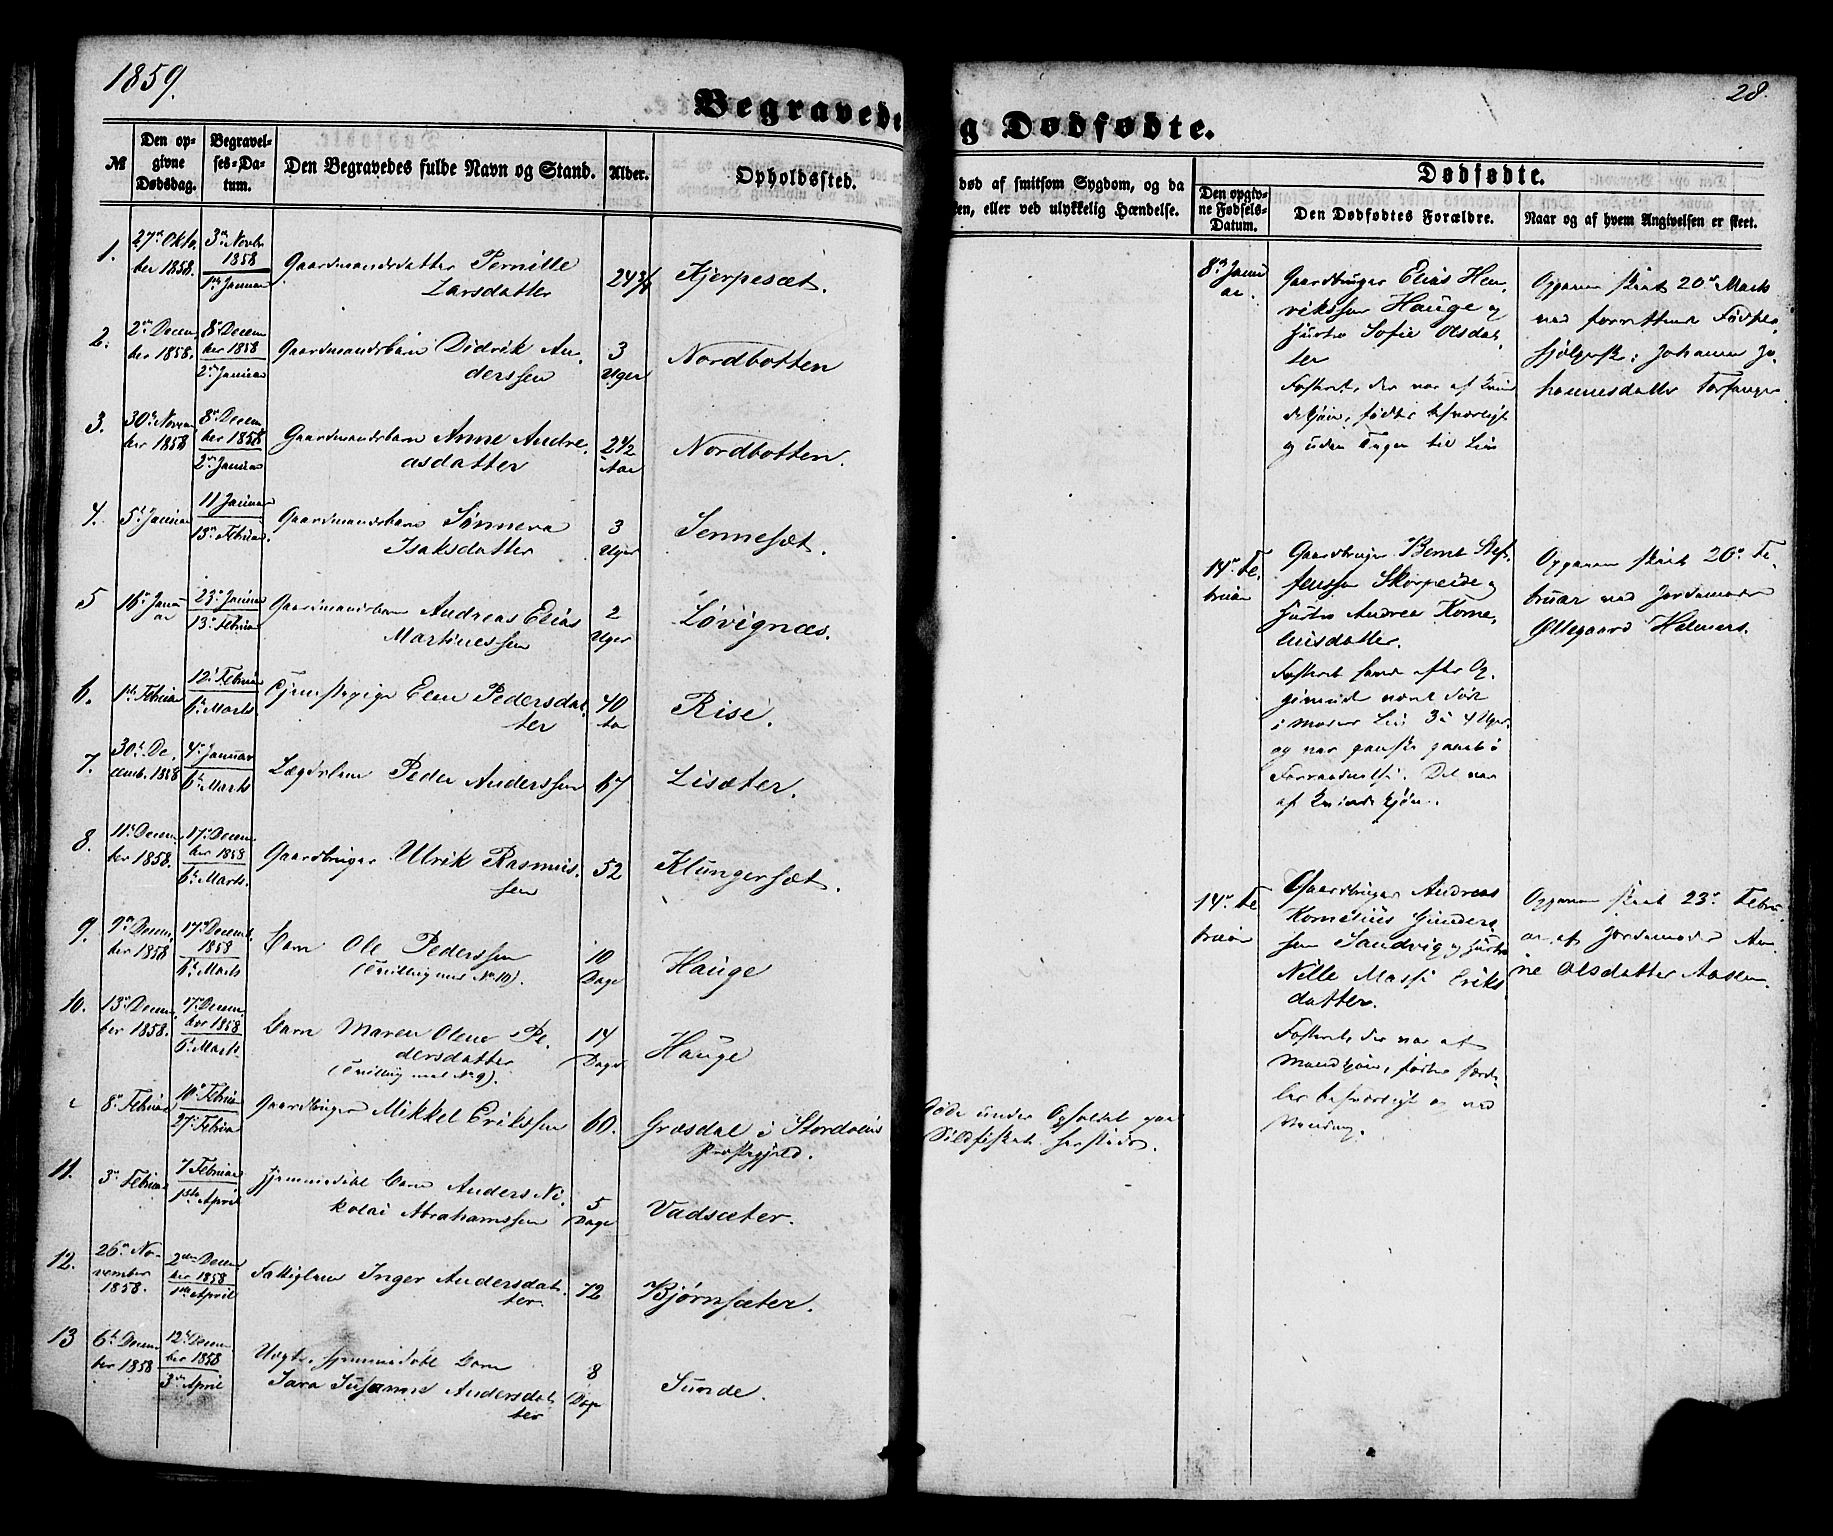 1859.
28.
Begravede
g Dødfødte.
№
Den op-
givne
Dødsdag.
Begravel-
ses-Da-
tum.
Den Begravedes fulde Navn og Stand.
Alder.
Opholdssted.
død af smitsom Sygdom, og da
en, eller ved ulykkelig Hændelse.
Dødfødte.
Den opgiv-
ne Fødsels-
Datum.
Den Dødfødtes Forældre.
Naar og af hvem Angivelsen er skeet.
1.
27de Okto-
ber 1858.
3die Novbr
1858
1ste Januar
Gaardmandsdatter Pernille
Larsdatter
24
Kjerpesæt.
2.
2den Decem-
ber 1858.
8de Decem-
ber 1858
2den Januar
Gaardmandsbarn Didrik An-
derssen
3
Uger
Nordbotten
3.
30te Novem-
ber 1858
8de Decem-
ber 1858
2den Januar
Gaardmandsbarn Anne Andre-
asdatter
2 1/2
Aar
Nordbotten.
4.
5te Januar
11 Januar
13de Februar
Gaardmandsbarn Sønneva
Isaksdatter
3
Uger
Sennesæt.
5
16de Janu-
ar
23de Januar
13de Februar
Gaardmandsbarn Andreas Elias
Martinussen
2
Uger
Løvignæs.
6.
1ste Februar
12te Februar
6te Marts.
Tjenestepige Elen Pedersdat-
ter
40
Aar
Rise.
7.
30te De-
cemb. 1858
4de Januar
6te Marts
Lægdslem Peder Anderssen
67
Lisæter.
8.
11te Decem-
ber 1858.
17de Decem-
ber 1858
6te Marts.
Gaardbruger Ulrik Rasmus-
sen
52
Klungersæt.
9.
9de Decem-
ber 1858
17de Decemb.
1858
6te Marts
Barn Ole Pederssen
(Tvilling med No 10).
10
Dage
Hauge
10.
13de Decem-
ber 1858.
17de Decem-
ber 1858
6te Marts
Barn Maren Olene Pe-
dersdatter
(Tvilling med No 9).
14
Dage
Hauge
8de Februar
10de Februar
27de Februar
Gaardbruger Mikkel Erikssen
60.
Græsdal i Stordøens
Præstegjeld.
Døde under Opholdet paa
Sildfisket hersteds.
11.
3die Februar
7 Februar
1ste April
Hjemmedøbt Barn Anders Ni-
kolai Abrahamssen
5
Dage
Vadsæter.
12.
26de No-
vember
1858.
2den Decem-
ber 1858
1ste April
Fattiglem Inger Andersdat-
ter.
72
Bjørnsæter.
13
6te Decem-
ber 1858
12te Decem-
ber 1858
3die April
Uægte hjemmedøbt Barn
Sara Susanne Andersdat-
ter
8
Dage
Sunde.
8de Janu-
ar.
Gaardbruger Elias Hen-
rikssen Hauge og
Hustru Sofie Olsdat-
ter
Fosteret, der var af Kvin-
dekjøn, fødtes besværligt
og uden Tegn til Liv
Opgaven skeet 20de Marts
ved forrettende Fødsels-
hjelperske: Johanne Jo-
hannesdatter
14de Fe-
bruar
Gaardbruger Bernt Stef-
fenssen Skorpeide og
Hustru Andrea Korne-
liusdatter.
Fosteret havde efter Op-
givende været dødt
i Moders Liv 3 à 4 Uger
og var ganske gaaet i
Forraadnelse. Det var
af Kvindekjøn.
Opgaven skeet 20de Fe-
bruar ved Jordemoder
Øllegaard Helmers.
14de Fe-
bruar
Gaardbruger Andreas
Kornelius Gunder-
sen Sandvig og Hustru
Nille Marti Eriks-
datter.
Fosteret, der var af
Mandkjøn, fødtes særde-
les besværligt og ved
Vending.
Opgaven skeet 23de Febru-
ar af Jordemoder An-
ne Olsdatter Aasen